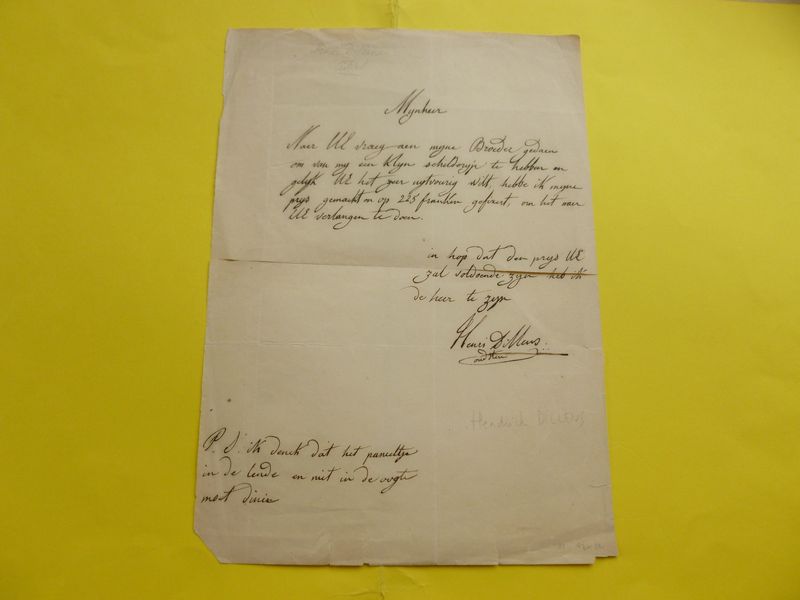 Mynheer
Naer UE vraeg aen myne Broeder gedaen
om van my een klyn schilderyn te hebben en
gelyk UE het zeer uytvourig wilt, hebbe ik myne
prys gemaekt en op 225 franken gefixert, om het naer
UE verlangen te doen.
in hop dat den prys UE
zal voldoende zyn heb ik
de heer te zyn
Henri Dillens
Hendrick DILLENS
P. S. ik denck dat het paneeltje
in de lende en niet in de oogte
moet